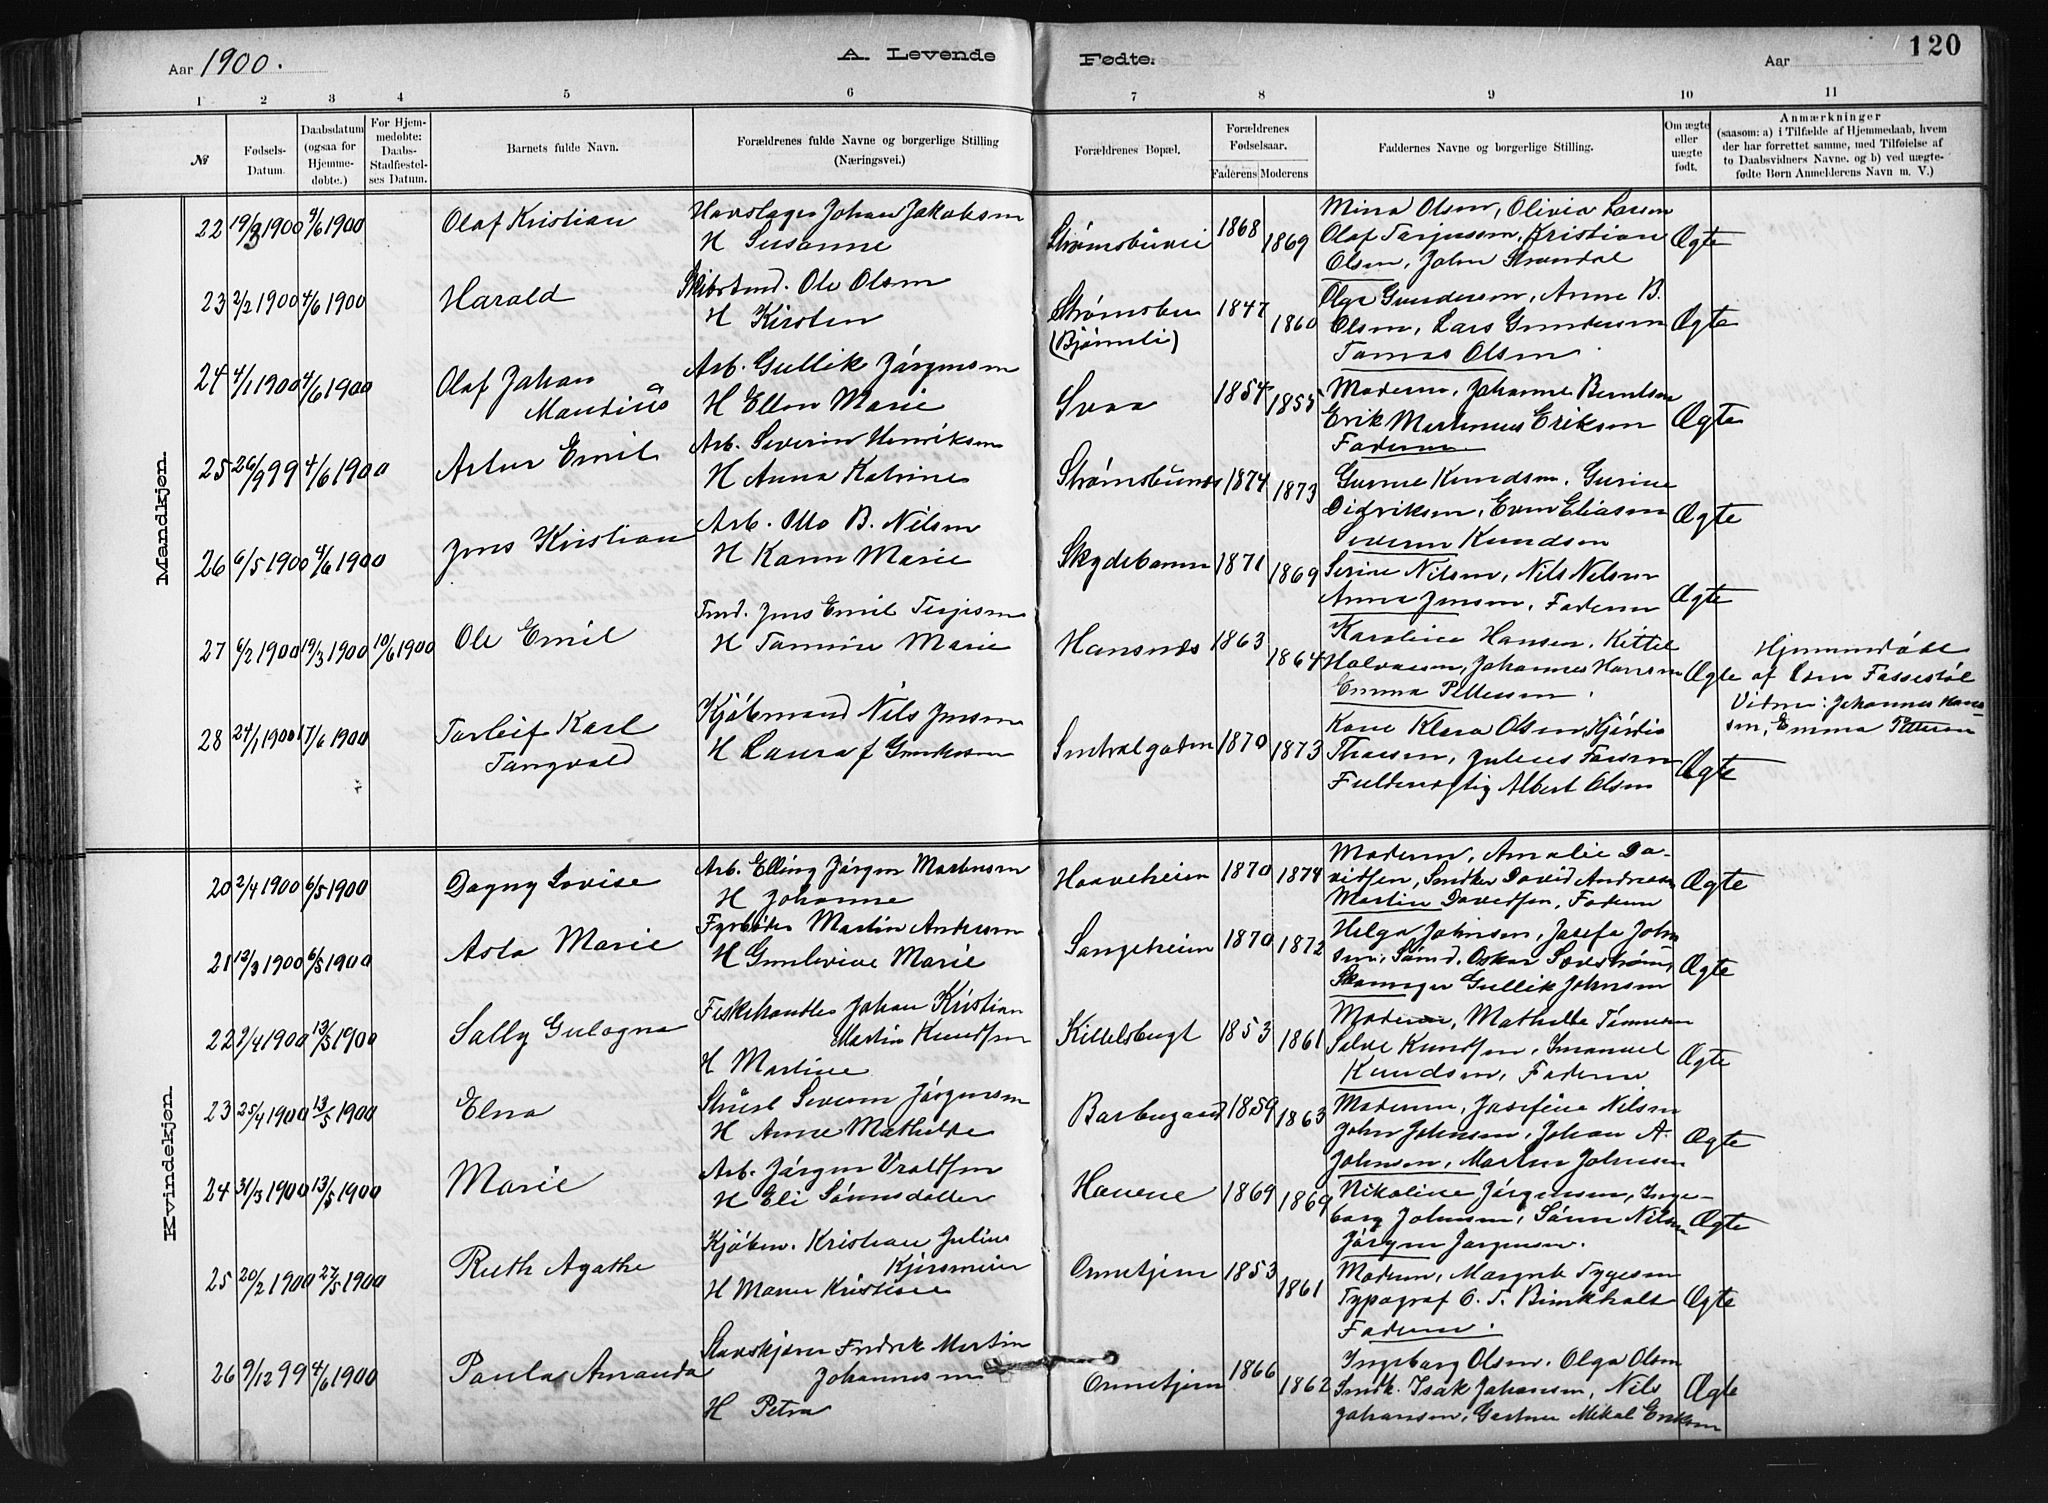 Aar 1900.
A. Levende Fødte.
Aar
120
1 2 3 4 5 6 7 8 9 10 11
№
Fødsels-Datum.
Daabsdatum (ogsaa for Hjemmedøbte.)
For Hjemmedøbte: Daabs-Stadfæstelses Datum.
Barnets fulde Navn.
Forældrenes fulde Navne og borgerlige Stilling (Næringsvei.)
Forældrenes Bopæl.
Forældrenes Fødselsaar.
Faderens Moderens
Faddernes Navne og borgerlige Stilling.
Om ægte eller uægte født.
Anmærkninger
(saasom: a) i Tilfælde af Hjemmedaab, hvem der har forrettet samme, med Tilføielse af to Daabsvidners Navne. og b) ved uægtefødte Børn Anmelderens Navn m. V.)
Mandkjøn.
22 19/3 1900 4/6 1900 Olaf Kristian Johan Jakobsen
H Susanne
1868 1869
Mina Olsen, Olivia Larsen
Olaf Terjesen, Kristian
Olsen, John Strøndal
Ægte
23 2/2 1900 4/6 1900 Harald Ole Olsen
H Kirsten
Strømsbu
(Bjørnli)
1847 1860
Olga Gundersen, Anne B.
Olsen, Lars Gundersen
Tomas Olsen
Ægte
24 4/1 1900 4/6 1900 Olaf Johan
Mantius
Arb. Gullik Jørgensen
H Ellen Marie
Svaa
1854 1855
Moderen, Johanne Berntsen
Erik Martinius Eriksen
Faderen
Ægte
25 26/9 99 4/6 1900 Artur Emil
Arb. Severin Henriksen
H Anna Katrine
Strømsbunes
1874 1873
Gurine Knudsen, Gurine
Didriksen, Even Eliasen
Severin Knudsen
Ægte
26 6/5 1900 4/6 1900 Jens Kristian
Arb. Otto B. Nilsen
H Karen Marie
Skydebanen
1871 1869
Serine Nilsen, Nils Nilsen
Anna Jensen, Faderen
Ægte
27 6/2 1900 19/3 1900 10/6 1900 Ole Emil
Tmd. Jens Emil Terjesen
H Tomine Marie
Hansnæs
1863 1864
Karoline Hansen, Kittel
Halvorsen, Johannes Hansen
Emma Pettersen
Ægte
Hjemmedøbt
af Fossestøl
Vidner: Johannes Hansen,
Emma Pettersen
28 24/1 1900 17/6 1900 Torleif Karl
Tangvald
Kjøbmand Nils Jensen
H Laura f Gundersen
1870 1873
Kone Klara Olsen,
Julius Larsen
Fuldmægtig Albert Olsen
Ægte
Kvindekjøn.
20 2/4 1900 6/5 1900 Dagny Lovise
Arb. Elling Jørgen Mortensen
H Johanne
Haaveheien
1870 1874
Moderen, Amalie Davidsen,
Snedker David Andreasen
Martin Davidsen, Faderen
Ægte
21 12/3 1900 6/5 1900 Asta Marie
Fyrbøder Martin Andersen
H Gunlevine Marie
Langeheien
1870 1872
Helga Johnsen, Josefa Johnsen,
Sømd. Oskar
Gullik Johnsen
Ægte
22 9/4 1900 13/5 1900 Sally Gulogna
Fiskehandler Johan Kristian
Martin Knudsen
H Martine
Kittelsbugt
1853 1861
Moderen, Mathilde Tønnesen
Salve Knudsen, Imanuel
Knudsen, Faderen
Ægte
23 25/4 1900 13/5 1900 Elna
Severin Jørgensen
H Anne Mathilde
Barbugaard
1859 1863
Moderen, Josefine Nilsen
John Johnsen, Johan A.
Johnsen, Martin Johnsen
Ægte
24 31/3 1900 13/5 1900 Marie
Arb. Jørgen Vraldsen
H Eli Sønnesdatter
Havene
1869 1869
Nikoline Jørgensen, Ingeborg
Johnsen, Søren Nilsen
Jørgen Jørgensen.
Ægte
25 20/2 1900 27/5 1900 Ruth Agathe
Kjøbm. Kristian Julius
H Maren Kristine
1853 1861
Moderen, Margrit Tygesen
Typograf O. T. Birkholt
Faderen.
Ægte
26 9/12 99 4/6 1900 Paula Amanda
Fredrik Martin
Johannesen
H Petra
1866 1862
Ingeborg Olsen, Olga Olsen
Snedk. Isak Johansen, Nils
Johansen, Gartner Mikal Eriksen
Ægte